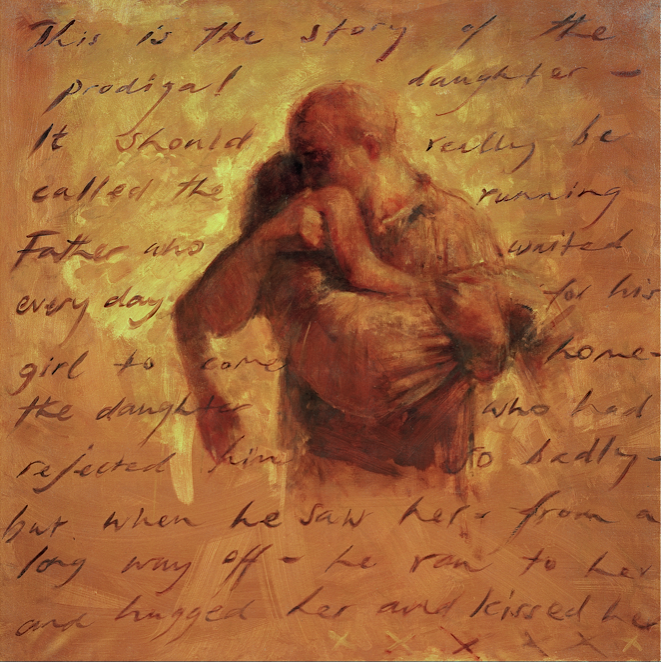 This is the story of the
prodigal daughter -
It should really be
called the running
Father who waited
every day for his
girl to come home -
the daughter who had
rejected him so badly -
but when he saw her - from a
long way off - he ran to her
and hugged her and kissed he
x x x x x x